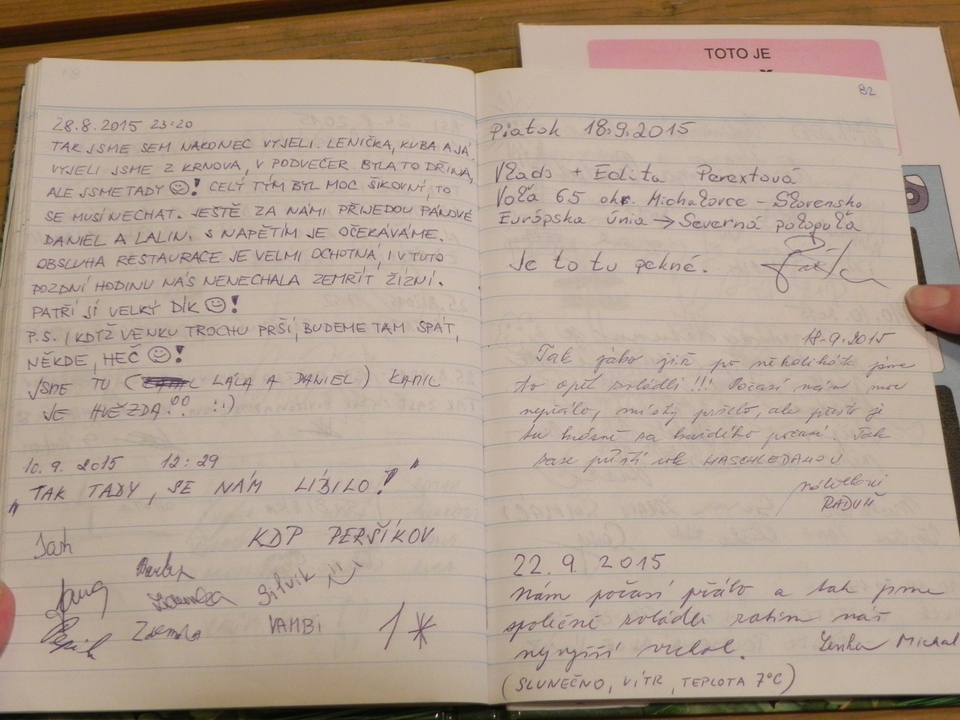 28.8.2015 23:20
TAK JSME SEM NAKONEC VYJELI. LENIČKA, KUBA A JÁ.
VYJELI JSME Z KRNOVA, V PODVEČER BYLA TO DŘINA,
ALE JSME TADY ☺! CELÝ TÝM BYL MOC ŠIKOVNÍ, TO
SE MUSÍ NECHAT. JEŠTĚ ZA NÁMI PŘIJEDOU PÁNOVÉ
DANIEL A LALIN. S NAPĚTÍM JE OČEKÁVÁME.
OBSLUHA RESTAURACE JE VELMI OCHOTNÁ, I V TUTO
POZDNÍ HODINU NÁS NENECHALA ZEMŘÍT ŽÍZNÍ.
PATŘÍ JÍ VELKÝ DÍK ☺!
P.S. I KDYŽ VENKU TROCHU PRŠÍ, BUDEME TAM SPÁT,
NĚKDE, HEČ ☺!
JSME TU ( LALA A DANIEL) KAMIL
JE HVĚZDA!! :)
10.9.2015 12:29
"TAK TADY, SE NÁM LÍBILO!"
KDP PERŠÍKOV
Zdenka VAMBI
TOTO JE
82
Piatok 18.9.2015
Vlado + Edita Perextová
Voľa 65 okr. Michalovce - Slovensko
Európska únia → Severná pologuľa
Je to tu pekné.
18.9.2015
Tak jako již po několikáté jsme
to opět zvládli!!! Počasí nám moc
nepřálo, místy pršelo, ale přesto je
tu krásně za každého počasí. Tak
zase příští rok NASCHLEDANOU
RADUŇ
22.9.2015
Nám počasí přálo a tak jsme
společně zvládli zatím náš
nejvyšší vrchol. Lenka Michal
(SLUNEČNO, VÍTR, TEPLOTA 7°C)